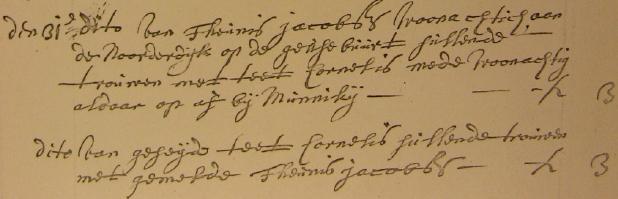 den 31e dito van Theunis Jacobsz woonachtich aan
de Noorderdijk op de gouwe buurt sullende
trouwen met teet Cornelis mede woonachtig
aldaar op af bij Munnikij — — - f 3
dito van geseijde teet Cornelis sullende trouwen
met gemelde Theunis Jacobsz — - f 3